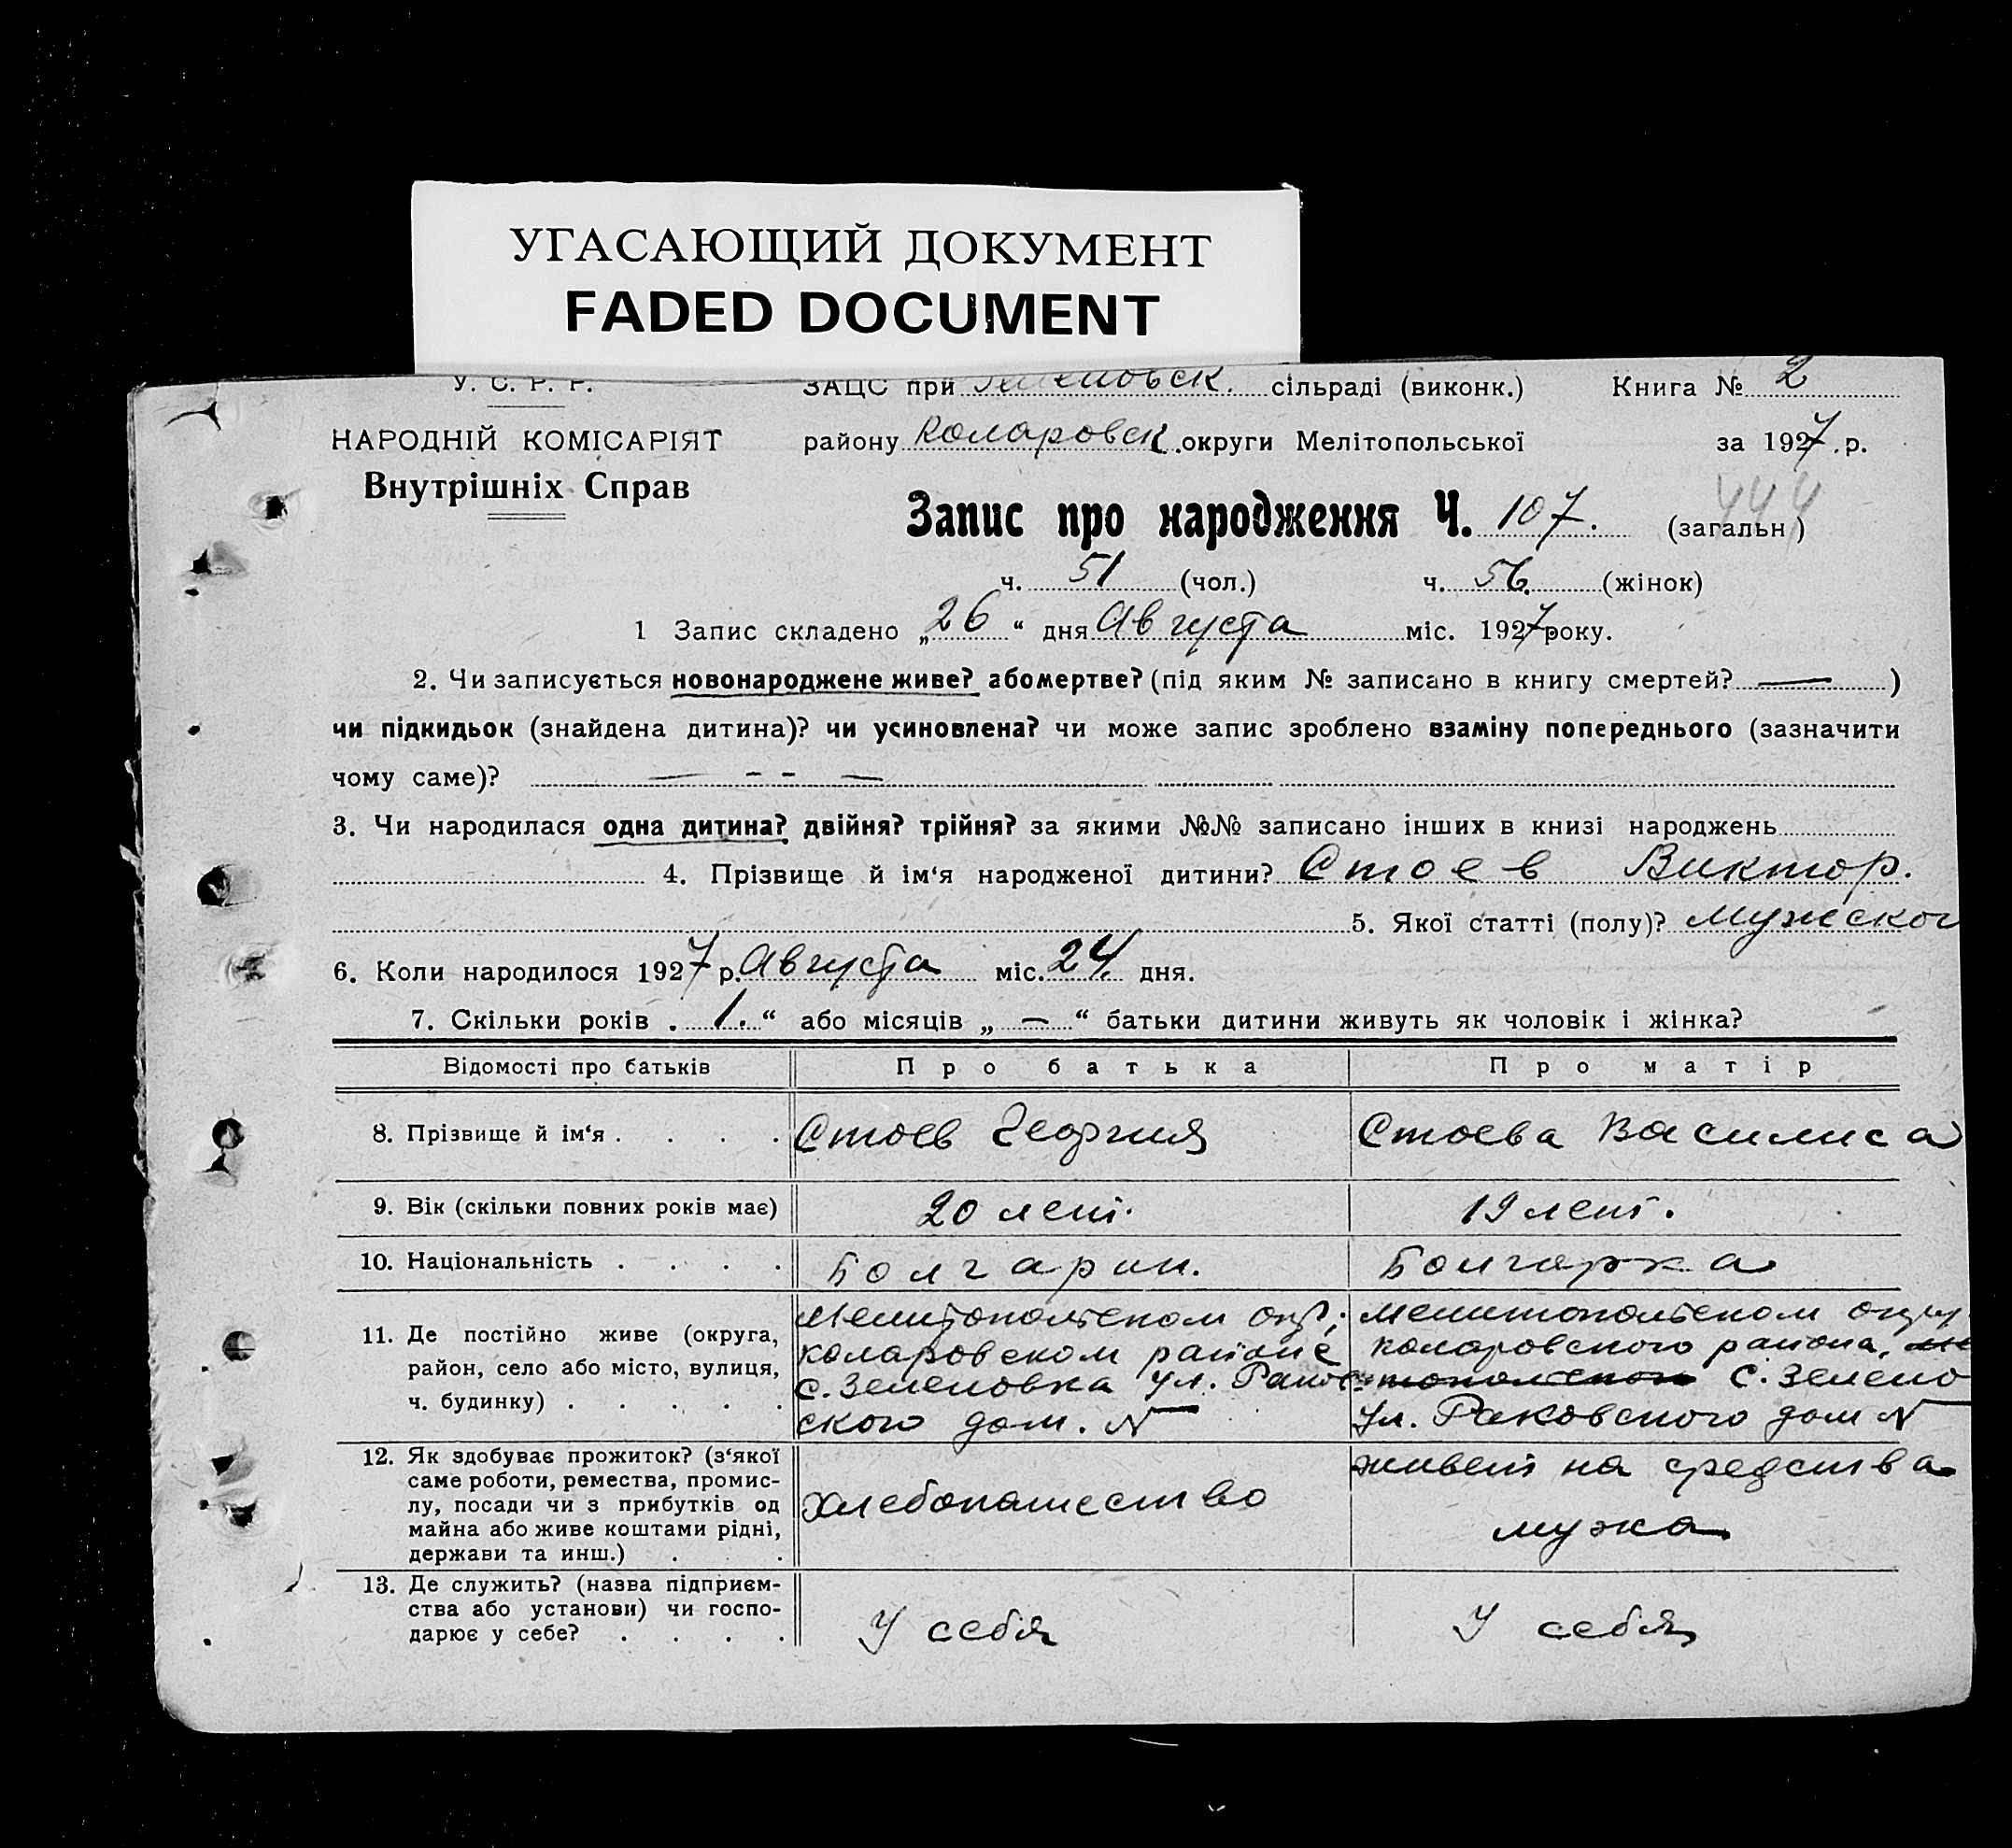 УГАСАЮЩИЙ ДОКУМЕНТ
FADED DOCUMENT
У. С. Р. Р.
ЗАЦС при сільраді (виконк.) Книга № 2
НАРОДНІЙ КОМІСАРІЯТ
району Коларовск. округи Мелітопольської за 1927 .р.
Внутрішніх Справ
444
Запис про народження Ч. 107. (загальн )
ч. 51 (чол.) ч. 56. (жінок)
1 Запис складено „26“ дня Августа міс. 1927 року.
2. Чи записується новонароджене живе? абомертве? (під яким № записано в книгу смертей? — )
чи підкидьок (знайдена дитина)? чи усиновлена? чи може запис зроблено взаміну попереднього (зазначити
чому саме)? — - - —
3. Чи народилася одна дитина? двійня? трійня? за якими №№ записано інших в книзі народжень
4. Прізвище й ім‘я народженої дитини? Стоев Виктор.
5. Якої статті (полу)? Мужеског
6. Коли народилося 1927 р. Августа міс. 24. дня.
7. Скільки років . 1. “ або місяців „ — “ батьки дитини живуть як чоловік і жінка?
Відомості про батьків Про батька Про матір
8. Прізвище й ім‘я . . . . Стоев Георгия Стоева Василиса
9. Вік (скільки повних років має) 20 лет. 19 лет.
10. Національність . . . . Болгарин. Болгарка
11. Де постійно живе (округа,
район, село або місто, вулиця,
ч. будинку) . . . . .
Мелитопольском окр;
коларовском районе
с. Зеленовка ул. Раков-
ского дом. N —
Мелитопольском округ
коларовского района,
с. Зелено
ул. Раковского дом N —
12. Як здобуває прожиток? (з‘якої
саме роботи, ремества, промис-
лу, посади чи з прибутків од
майна або живе коштами рідні,
держави та инш.) . .
хлебопашество
живет на средства
мужа
13. Де служить? (назва підприєм-
ства або установи) чи госпо-
дарює у себе? . . . .
У себя
У себя